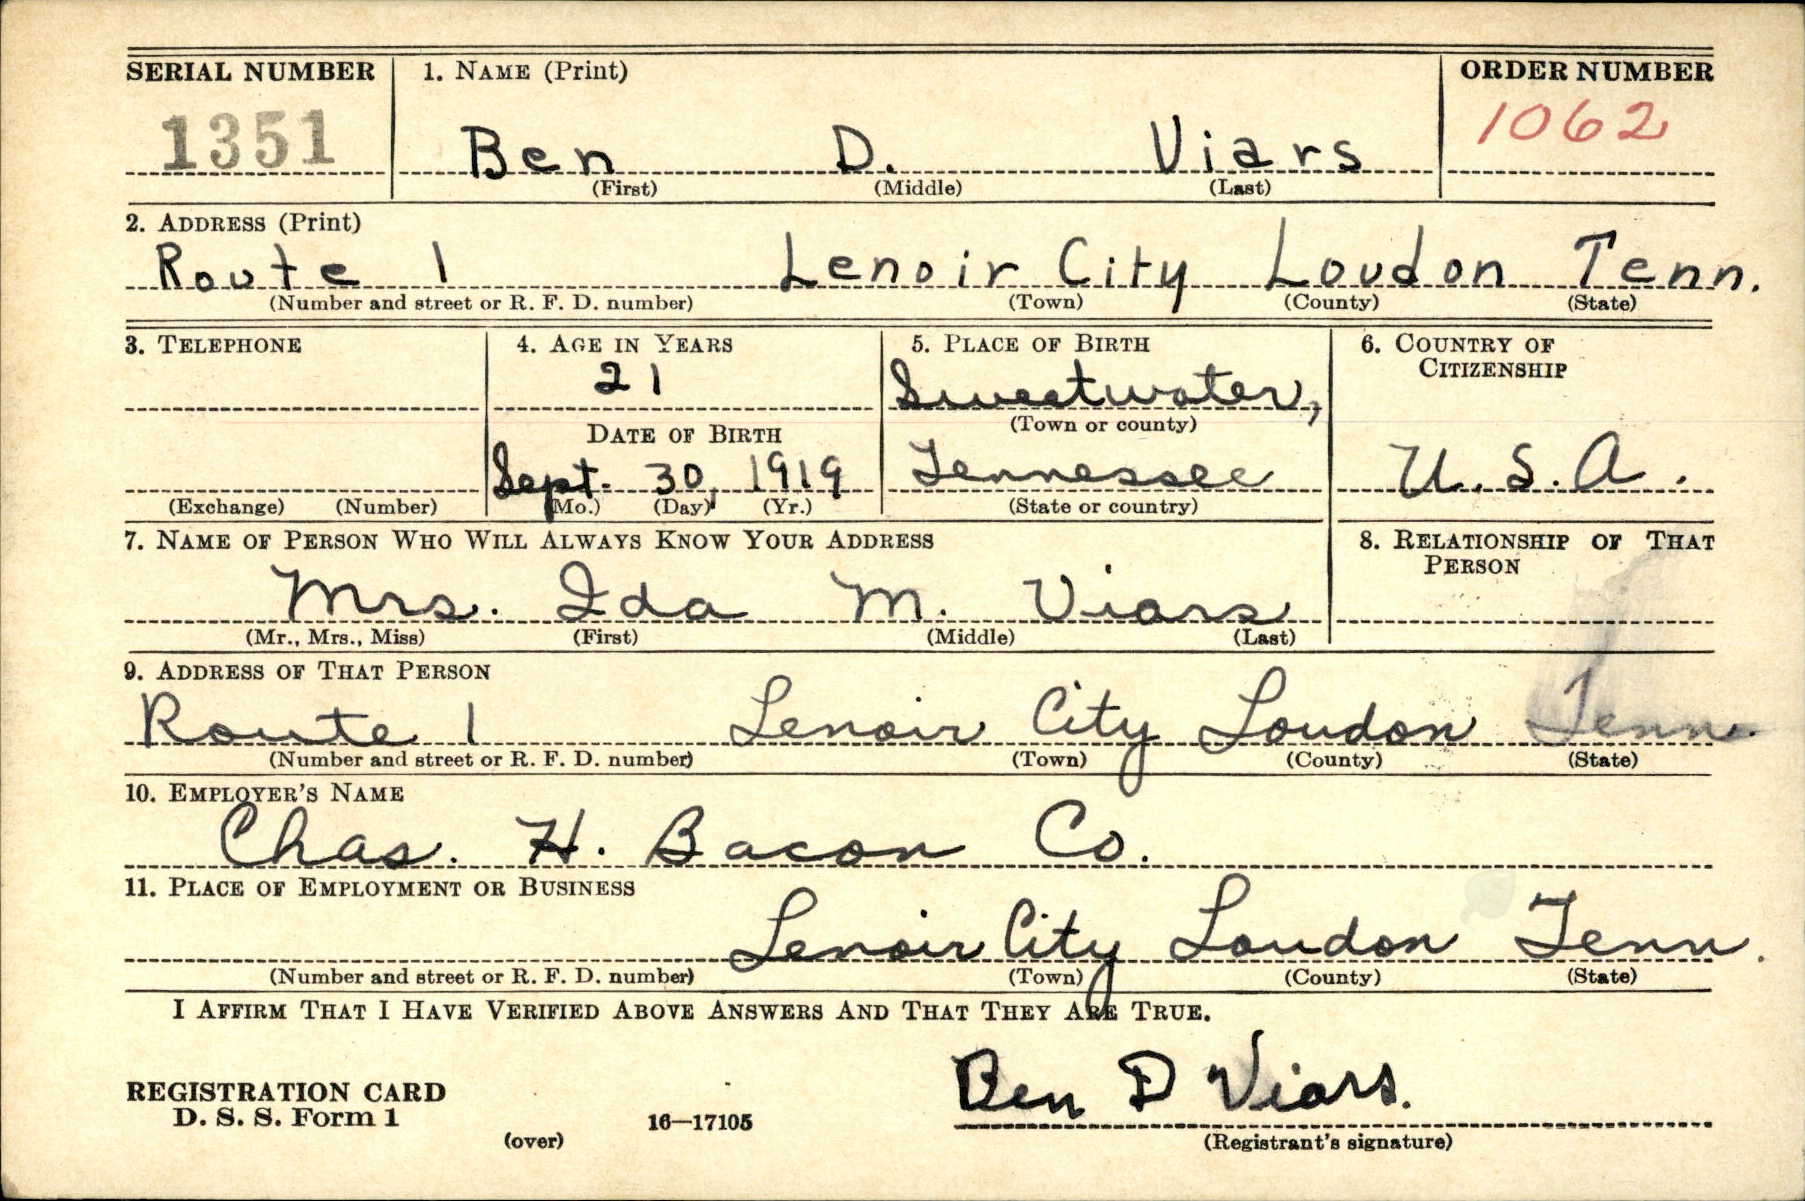 SERIAL NUMBER 1. NAME (Print) ORDER NUMBER
1351 Ben D. Viars 1062
(First) (Middle) (Last)
2. ADDRESS (Print)
Route 1 Lenoir City Loudon Tenn.
(Number and street or R. F. D. number) (Town) (County) (State)
3. TELEPHONE 4. AGE IN YEARS 5. PLACE OF BIRTH 6. COUNTRY OF
CITIZENSHIP
21 Sweetwater,
(Town or county)
DATE OF BIRTH
Sept. 30, 1919 Tennessee U.S.A.
(Exchange) (Number) (Mo.) (Day) (Yr.) (State or country)
7. NAME OF PERSON WHO WILL ALWAYS KNOW YOUR ADDRESS 8. RELATIONSHIP OF THAT
PERSON
Mrs. Ida M. Viars
(Mr., Mrs., Miss) (First) (Middle) (Last)
9. ADDRESS OF THAT PERSON
Route 1 Lenoir City Loudon Tenn.
(Number and street or R. F. D. number) (Town) (County) (State)
10. EMPLOYER'S NAME
Chas. H. Bacon Co.
11. PLACE OF EMPLOYMENT OR BUSINESS
Lenoir City Loudon Tenn.
(Number and street or R. F. D. number) (Town) (County) (State)
I AFFIRM THAT I HAVE VERIFIED ABOVE ANSWERS AND THAT THEY ARE TRUE.
Ben D Viars.
REGISTRATION CARD
D. S. S. Form 1 16—17105
(over) (Registrant's signature)